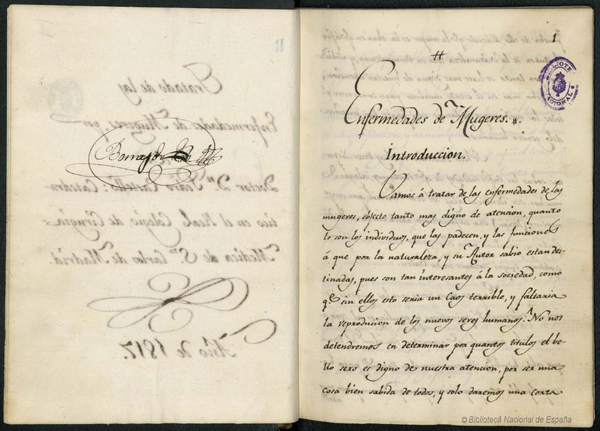 1
Enfermedades de Mugeres.
Introduccion.
Vamos á tratar de las enfermedades de las
mugeres, objecto tanto mas digno de atencion, quanto
lo son los individuos, que las padecen, y las funciones
á que por la naturaleza, y su Autor sabio estan des-
tinadas, pues son tan interesantes á la sociedad, como
q.e sin ellas esto seria un Caos terrible, y faltaria
la reproducion de los nuevos seres humanos. No nos
detendremos en determinar por quantos titulos el be-
llo sexo es digno de nuestra atencion, por ser una
cosa bien sabida de todos, y solo daremos una corta
Tratado de las
Enfermedades de Mugeres, por
Doctor Dn. Pedro Castelló: Catedra-
tico en el Real Colegio de Cirugia
Medica de Sn. Carlos de Madrid.
Año de 1817.
© Biblioteca Nacional de España